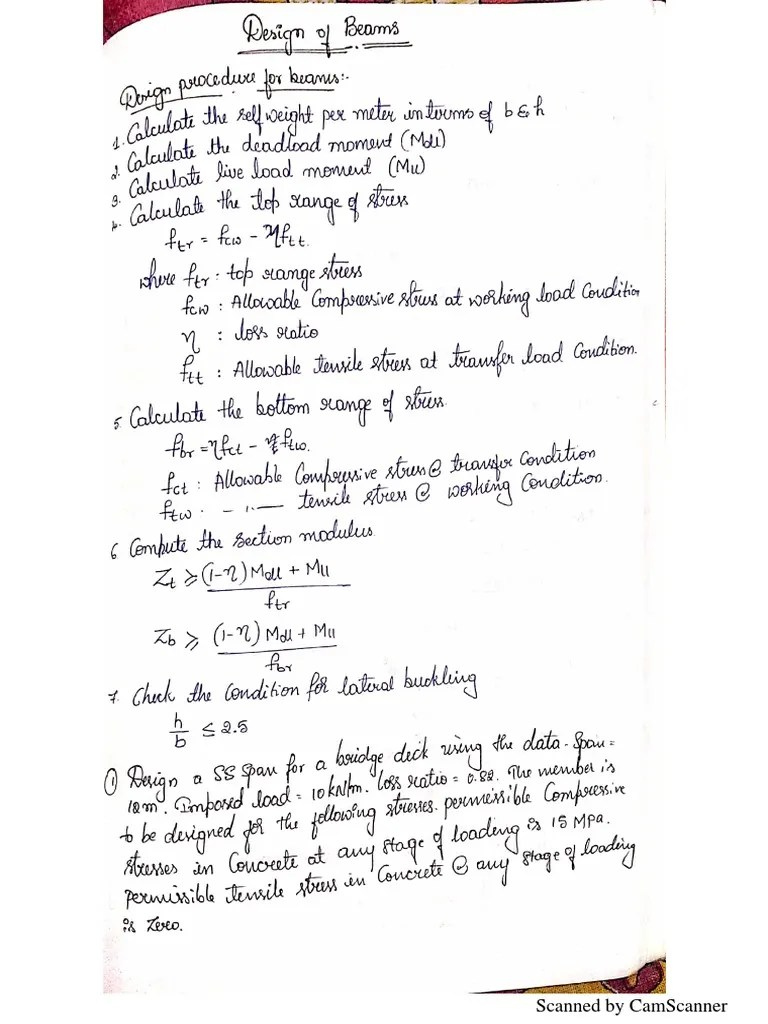 Design of Beams
Design procedure for beams:-
1. Calculate the self weight per meter in terms of b & h
2. Calculate the deadload moment (Mdl)
3. Calculate live load moment (Mll)
4. Calculate the top range of stress
ftr = fcw - ηftt.
where ftr : top range stress
fcw : Allowable Compressive stress at working load Condition
η : loss ratio
ftt : Allowable tensile stress at transfer load Condition.
5. Calculate the bottom range of stress
fbr = ηfct - ftw.
fct : Allowable Compressive stress @ transfer Condition
ftw. - ,, — tensile stress @ working Condition.
6 Compute the section modulus
Zt ≥ (1-η) Mdl + Mll
ftr
Zb ≥ (1-η) Mdl + Mll
fbr
7. Check the Condition for lateral buckling
h/b ≤ 2.5
① Design a SS span for a bridge deck using the data. Span =
12m. Imposed load = 10 kN/m. loss ratio = 0.82. The member is
to be designed for the following stresses. permissible Compressive
stresses in Concrete at any stage of loading is 15 MPa.
permissible tensile stress in Concrete @ any stage of loading
is zero.
Scanned by CamScanner